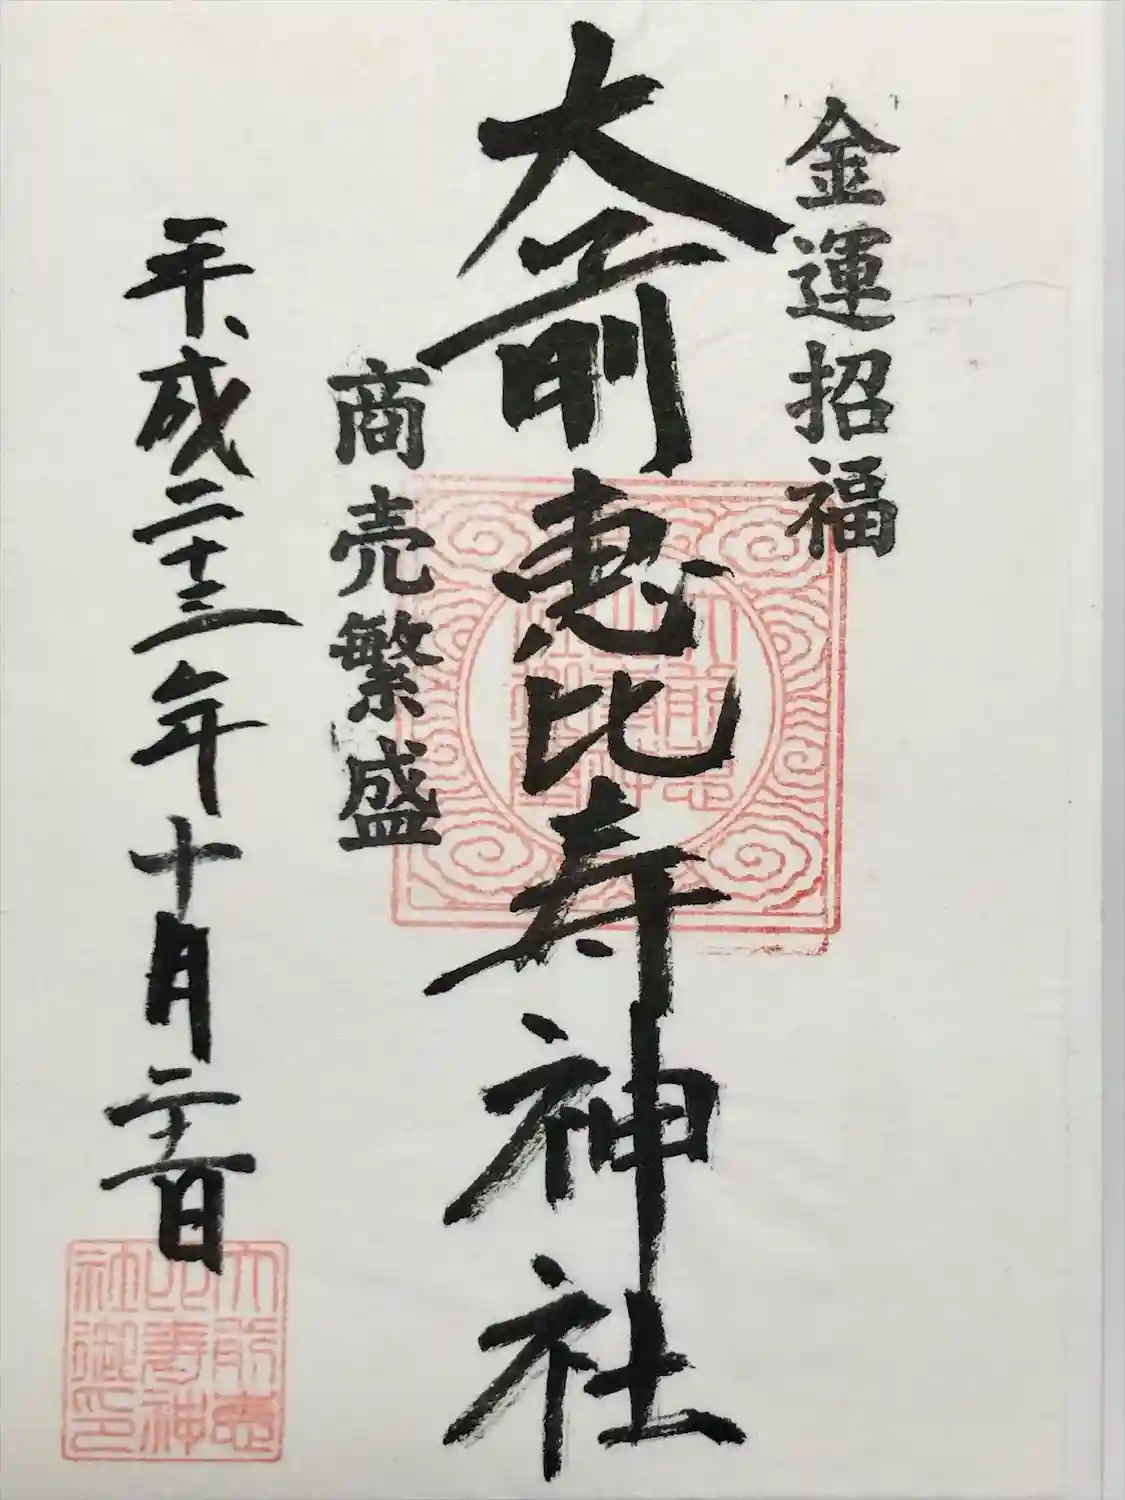 金運招福
大前恵比寿神社
商売繁盛
平成二十三年十月二十一日
大前恵
比寿神
社御印